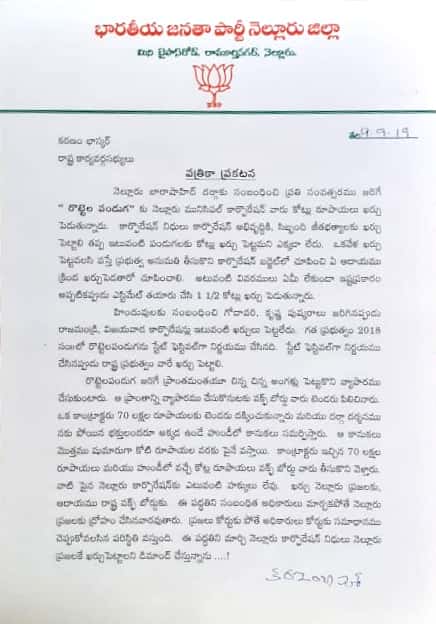 భారతీయ జనతా పార్టీ నెల్లూరు జిల్లా
మిని బైపాస్‌రోడ్, రామమూర్తినగర్, నెల్లూరు.
తేది 9-9-19
కరణం భాస్కర్
రాష్ట్ర కార్యవర్గసభ్యులు
పత్రికా ప్రకటన
నెల్లూరు బారాషాహిద్ దర్గాకు సంబంధించి ప్రతి సంవత్సరము జరిగే
" రొట్టెల పండుగ" కు నెల్లూరు మునిసిపల్ కార్పొరేషన్ వారు కోట్లు రూపాయలు ఖర్చు
పెడుతున్నారు. కార్పొరేషన్ నిధులు కార్పొరేషన్ అభివృద్ధికి, సిబ్బంది జీతభత్యాలకు ఖర్చు
పెట్టాలి తప్ప ఇటువంటి పండుగలకు కోట్లు ఖర్చు పెట్టమని ఎక్కడా లేదు. ఒకవేళ ఖర్చు
పెట్టవలసి వస్తే ప్రభుత్వ అనుమతి తీసుకొని కార్పొరేషన్ బడ్జెట్‌లో చూపించి ఏ ఆదాయము
క్రింద ఖర్చుపెడతారో చూపించాలి. అటువంటి వివరములు ఏమీ లేకుండా ఇష్టప్రకారం
అప్పటికప్పుడు ఎస్టిమేట్ తయారు చేసి 1 1/2 కోట్లు ఖర్చు పెడుతున్నారు.
హిందువులకు సంబంధించి గోదావరి, కృష్ణ పుష్కరాలు జరిగినప్పుడు
రాజమండ్రి, విజయవాద కార్పొరేషన్లు ఇటువంటి ఖర్చులు పెట్టలేదు. గత ప్రభుత్వం 2018
సం॥లో రొట్టెలపండుగను స్టేట్ ఫెస్టివల్‌గా నిర్ణయము చేసినది. స్టేట్ ఫెస్టివల్‌గా నిర్ణయము
చేసినప్పుడు రాష్ట్ర ప్రభుత్వం వారే ఖర్చు పెట్టాలి.
రొట్టెలపండుగ జరిగే ప్రాంతమంతయూ చిన్న చిన్న అంగళ్లు పెట్టుకొని వ్యాపారము
చేసుకుంటారు. ఆ ప్రాంతాన్ని వ్యాపారము చేసుకొనుటకు వక్ఫ్ బోర్డు వారు టెండరు పిలిచినారు.
ఒక కాంట్రాక్టరు 70 లక్షల రూపాయలకు టెండరు దక్కించుకున్నారు మరియు దర్గా దర్శనము
నకు పోయిన భక్తులందరూ అక్కడ ఉండే హుండీలో కానుకలు సమర్పిస్తారు. ఆ కానుకలు
మొత్తము షుమారుగా కోటి రూపాయల వరకు పైనే వస్తాయి. కాంట్రాక్టరు ఇచ్చిన 70 లక్షల
రూపాయలు మరియు హుండీలో వచ్చే కోట్ల రూపాయలు వక్ఫ్ బోర్డు వారు తీసుకొని వెళ్లారు.
వాటి పైన నెల్లూరు కార్పొరేషన్‌కు ఎటువంటి హక్కులు లేవు. ఖర్చు నెల్లూరు ప్రజలకు,
ఆదాయము రాష్ట్ర వక్ఫ్ బోర్డుకు. ఈ పద్ధతిని సంబంధిత అధికారులు మార్చకపోతే నెల్లూరు
ప్రజలకు ద్రోహం చేసినవారవుతారు. ప్రజలు కోర్టుకు పోతే అధికారులు కోర్టుకు సమాధానము
చెప్పుకోవలసిన పరిస్థితి వస్తుంది. ఈ పద్ధతిని మార్చి నెల్లూరు కార్పొరేషన్ నిధులు నెల్లూరు
ప్రజలకే ఖర్చుపెట్టాలని డిమాండ్ చేస్తున్నాను ....!